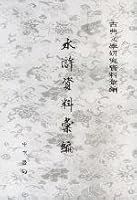 古典文學研究資料彙編
水滸資料彙編
中华书局